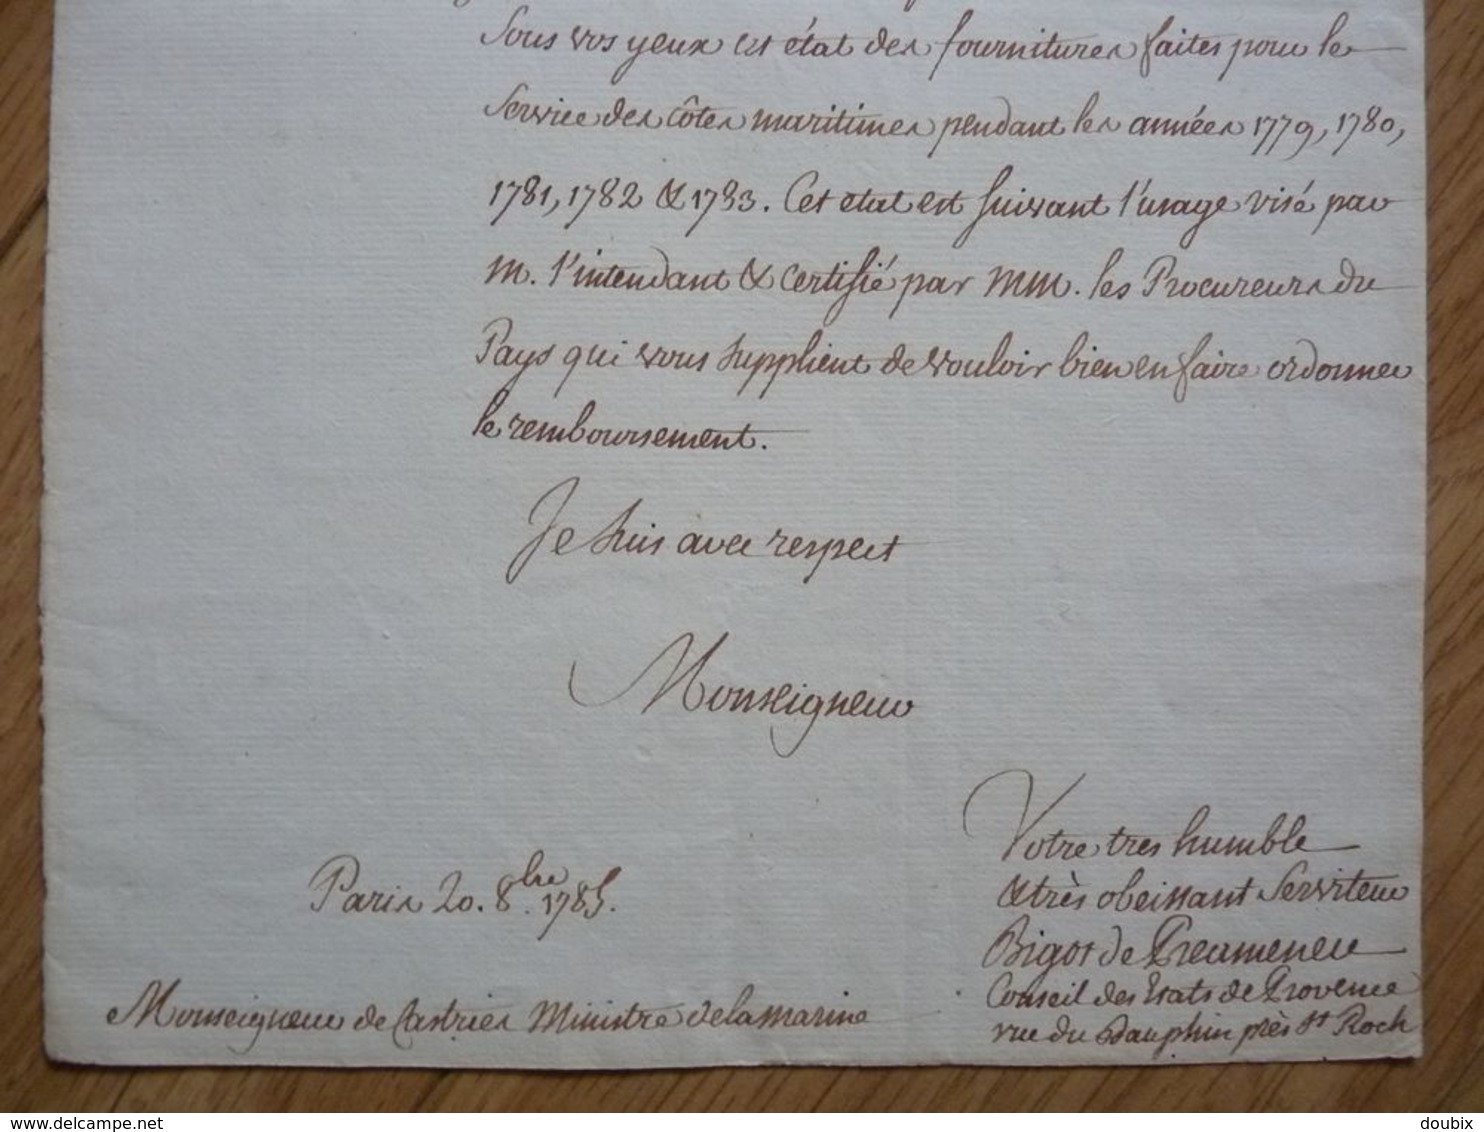 Sous vos yeux cet état des fournitures faites pour le
Service des côtes maritimes pendant les années 1779, 1780,
1781, 1782 & 1783. Cet etat est suivant l'usage visé par
M. l'intendant & certifié par MM. les Procureurs du
Pays qui vous supplient de vouloir bien en faire ordonner
le remboursement.
Je suis avec respect
Monseigneur
Votre tres humble
& très obeissant Serviteur
Bigot de Preameneu
Conseil des Etats de Provence
rue du Dauphin près St Roch
Paris 20. 8bre 1785.
Monseigneur de Castries Ministre de la marine
delcampe.net
doubix